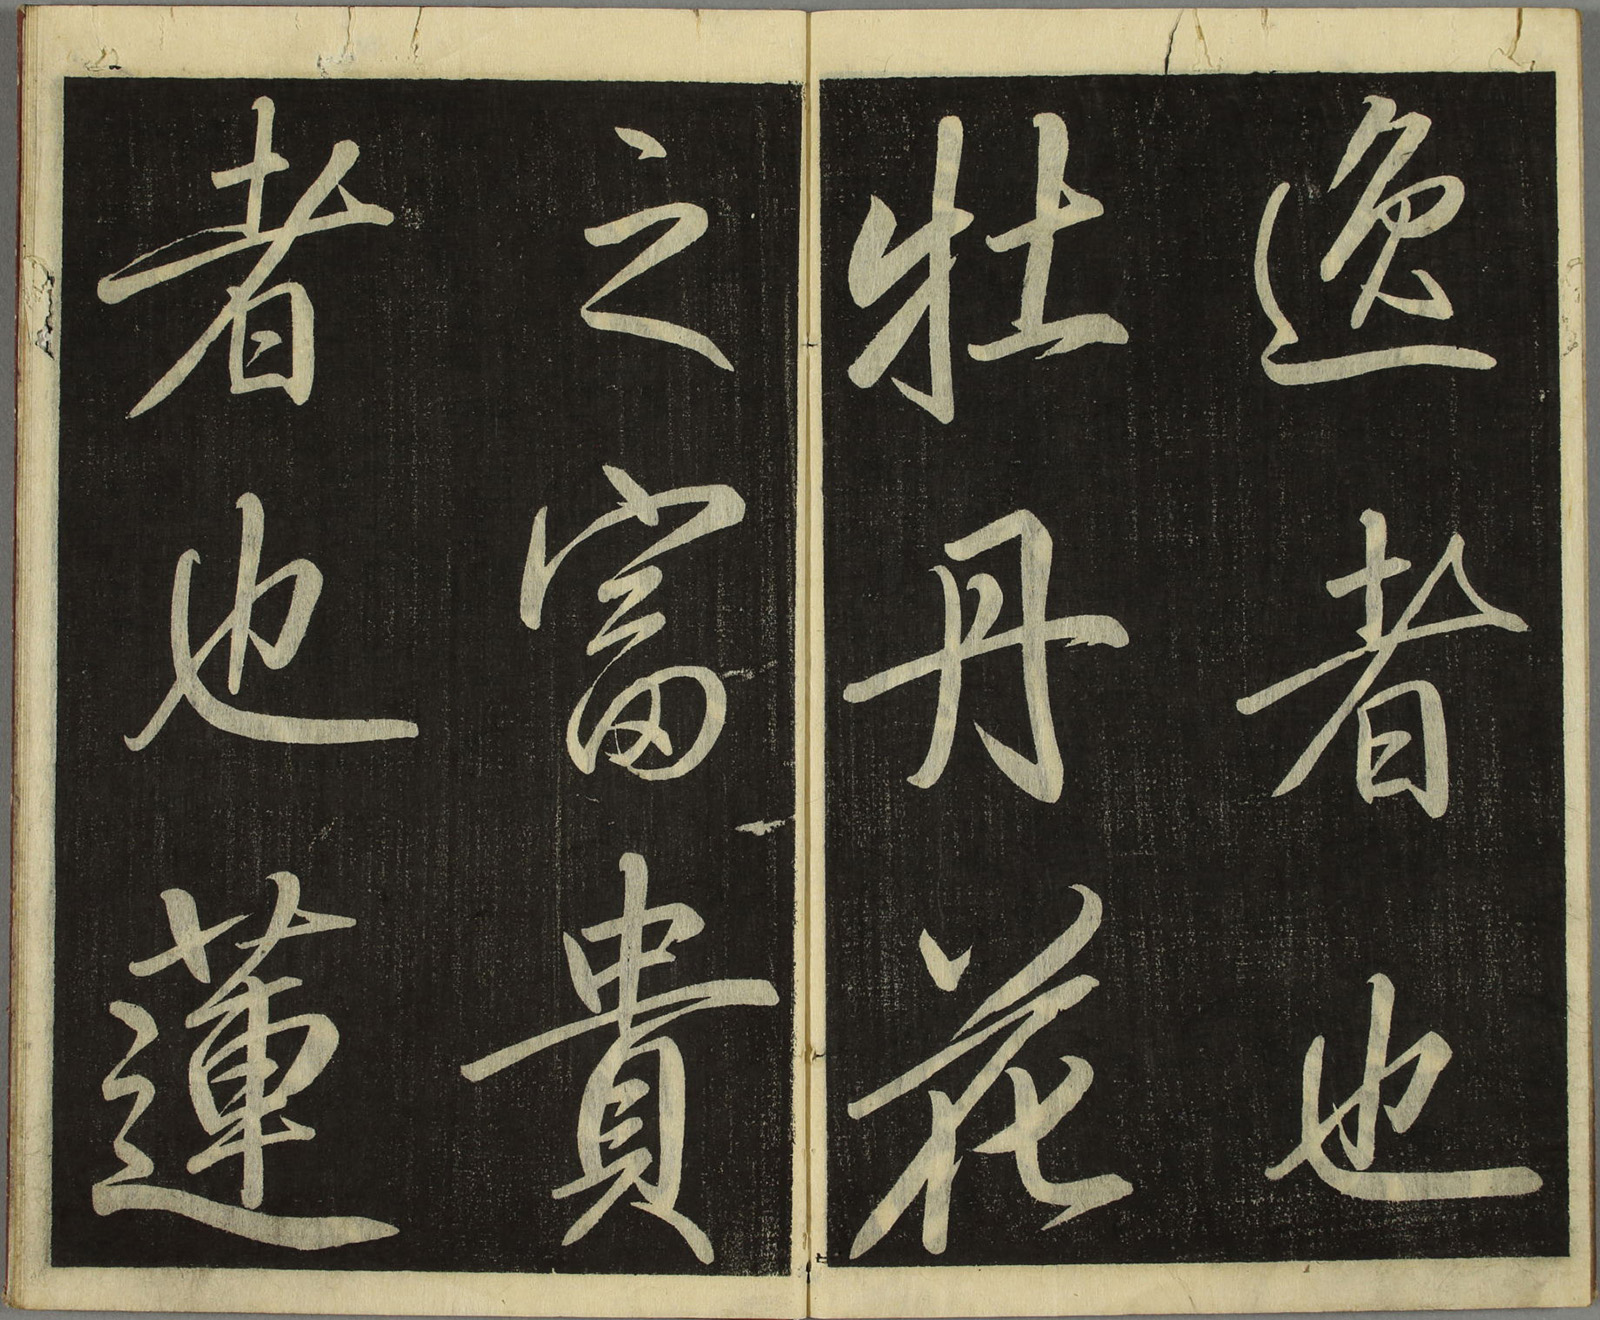 逸者也
牡丹花
之富貴
者也蓮